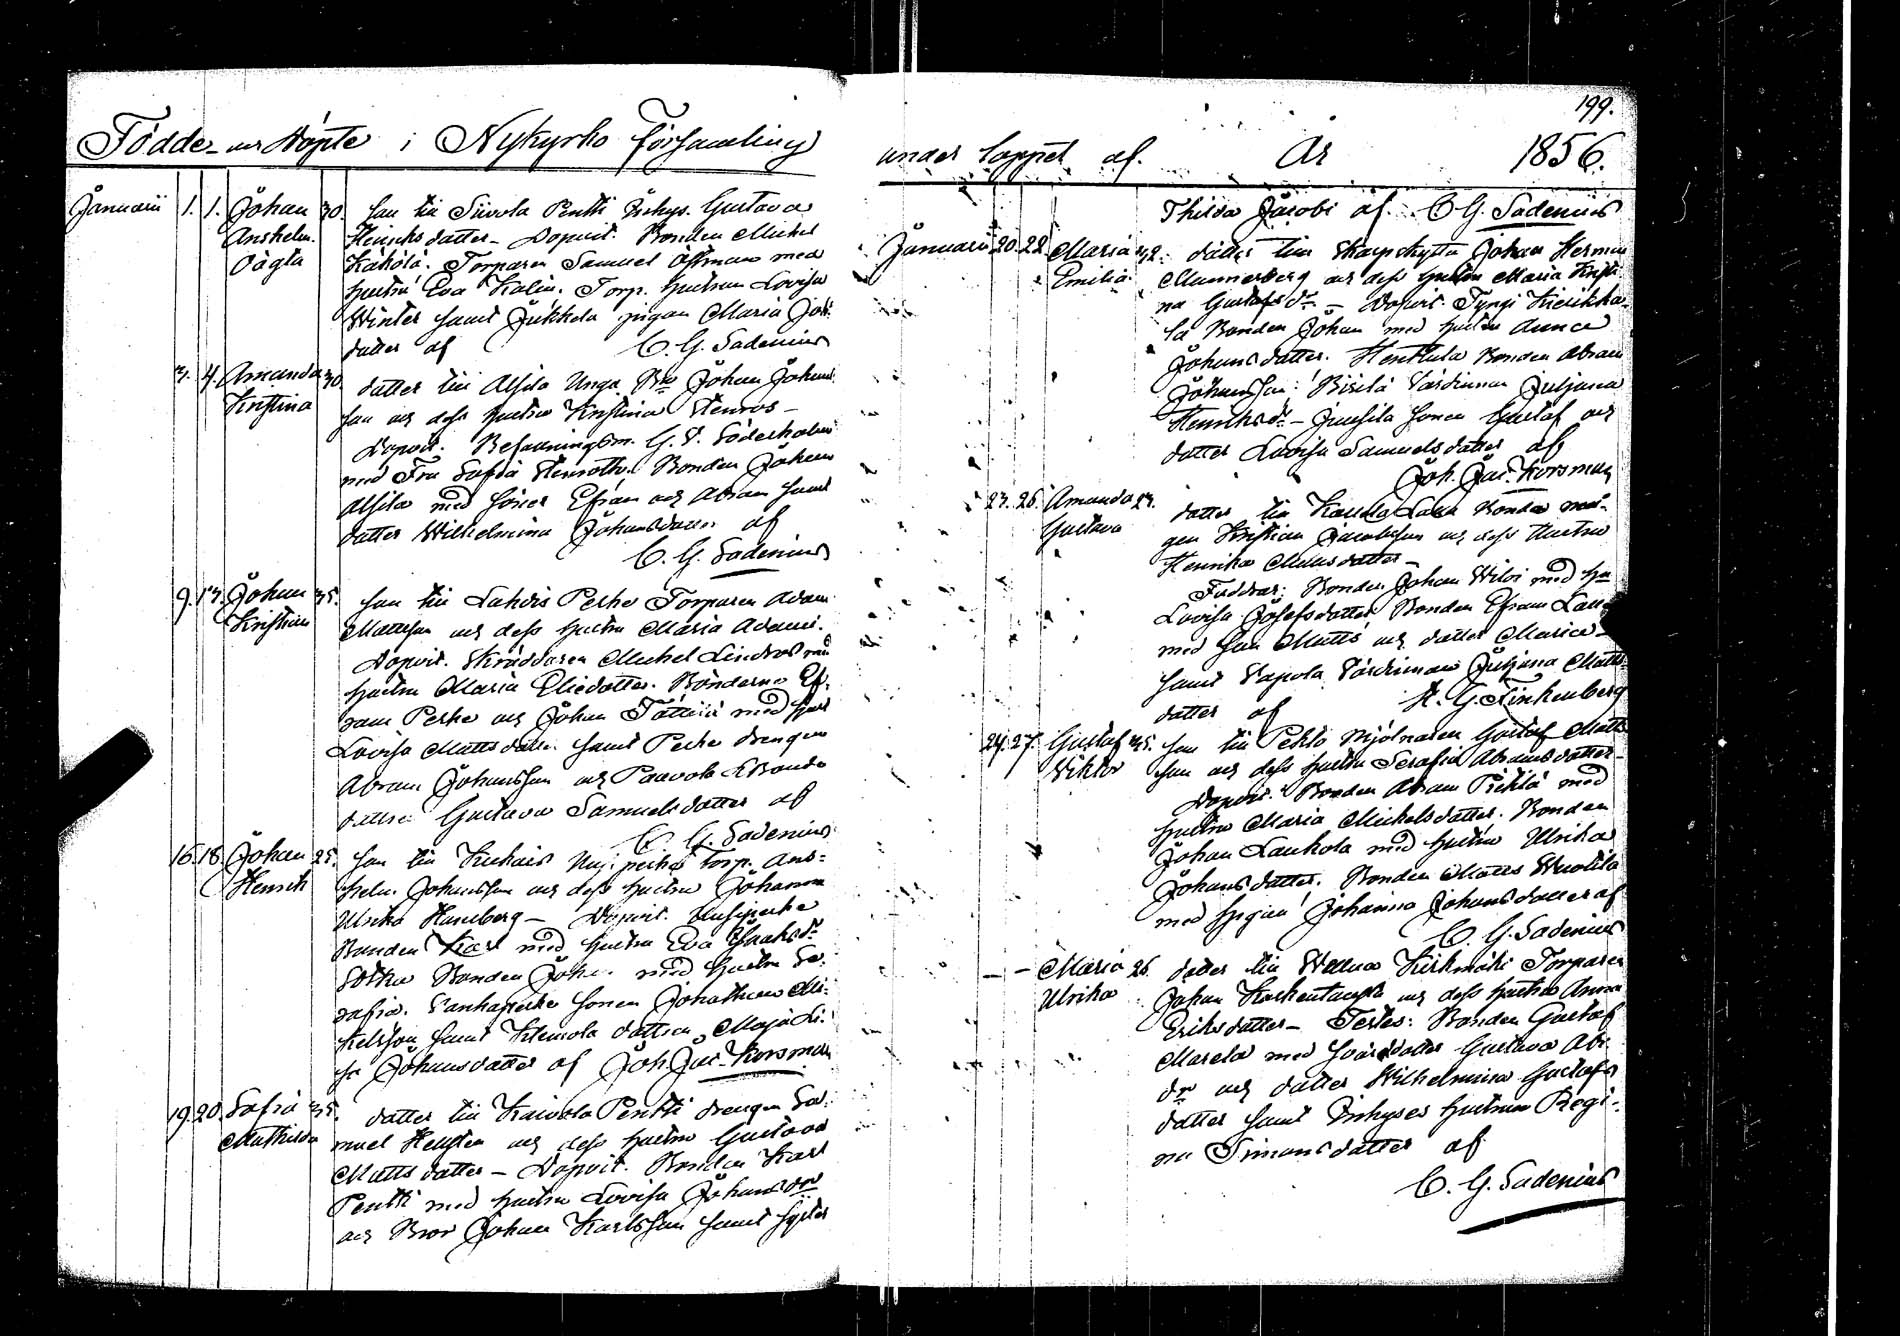 Födde och Döpte i Nykyrko Församling
Januarii 1. 1. Johan 30. son till Siivola Pentti Inhys. Gustava
Anshelm. Henricksdotter – Dopvit. Bonden Michel
Oägta Kaköla. Torparen Samuel Öffman med
hustru Eva Kalin. Torp. hustrun Lovisa
Winter samt Jukkela pigan Maria Joh.
dotter af C. G. Sadenius
3. 4. Amanda 30. dotter till Alsila Unga Bdn Johan Johans
Kristina son och dess hustru Kristina Stenros –
Dopvit. Befallningsm. G. Söderholm
med Fru Sofia Stenroth. Bonden Johan
Alsila med söner Efram och Abram samt
dotter Wilhelmina Johansdotter af
C. G. Sadenius
9. 13. Johan 35. son till Lahdis Perho Torparen Adam
Kristian Mattsson och dess hustru Maria Adami.
Dopvit. Skräddaren Michel Lindros med
hustru Maria Eliedotter. Bönderne Ef-
ram Perho och Johan Töttiiä med hust
Lovisa Mattsdotter samt Perho drengen
Abram Johansson och Paavola Bonde
dotter Gustava Samuelsdotter af
C. G. Sadenius
16. 18. Johan 25. son till Kukais Torp. Ans-
Henrik helm Johansson och dess hustru Johanna
Ulrika Haneberg – Dopvit.
Bonden Karl med hustru Eva Isaksdr
Bonden Joh. med hustru Se-
rafia. sonen Johan Mi-
kelsson samt Klemola dottren Maja Li-
sa Johansdotter af Joh. Jac. Korsman
19. 20. Sofia 35. dotter till Kaivola Pentti drengen Sa-
Mathilda muel Hengsten och dess hustru Gustava
Mattsdotter – Dopvit. Bonden Karl
Pentti med hustru Lovisa Johansdr
och Bror Johan Karlsson samt syster
199.
under loppet af. År 1856.
Thilda Jacobi af C. G. Sadenius
Januarii 20. 22. Maria 32. dotter till Skarpskytten Johan Herman
Emilia Mannerberg och dess hustru Maria Kristi-
na Gustafsdr – Dopvit. Tyngi Kierikka-
la Bonden Johan med hustru Anna
Johansdotter. Henttula Bonden Abram
Johansson. Värdinnan Juljana
Henriksdr – Jussila sonen Gustaf och
dotter Lovisa Samuelsdotter af
Joh. Jac. Korsman
23. 26. Amanda 23. dotter till Bonde må-
Gustava gen Kristian Jacobsson och dess Hustru
Henrika Mattsdotter –
Faddrar: Bonden Johan Wibi med hu
Lovisa Josefsdotter Bonden Efram
med son Matts och dotter Maria –
samt Värdinnan Juljana Matts-
dotter af H. G. Finkenberg
24. 27. Gustaf 35. son till Pehto mjölnaren Gustaf Matts
Viktor son och dess hustru Serafia Abramsdotter –
Dopvit. Bonden Abram Pihtlä med
hustru Maria Michelsdotter. Bonden
Johan Laukola med hustru Ulrika
Johansdotter. Bonden Matts Wuotila
med Johanna Johansdotter af
C. G. Sadenius
– – Maria 26. dotter till Kirkmäki Torparen
Ulrika Johan och dess hustru Anna
Eriksdotter – Testes: Bonden Gustaf
Marela med Gustava Abr.
dr och dotter Wilhelmina Gustafs
dotter samt Inhyses hustrun Regi-
na Simonsdotter af
C. G. Sadenius